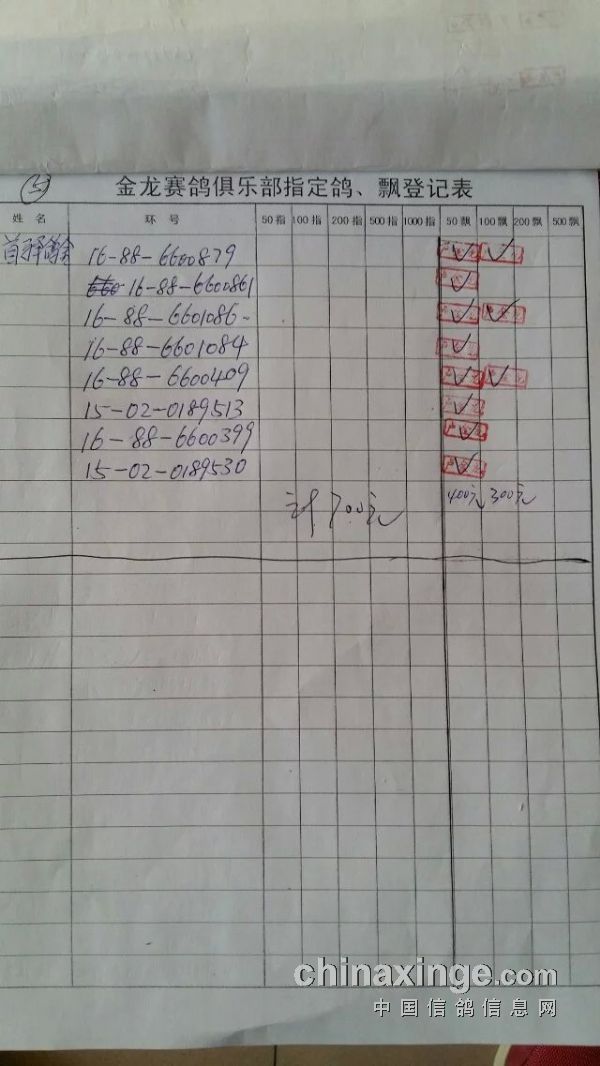 5
金龙赛鸽俱乐部指定鸽、飘登记表
姓名 环号 50指 100指 200指 500指 1000指 50飘 100飘 200飘 500飘
16-88-6600879 ✓ ✓
16-88-6600861 ✓
16-88-6601086- ✓ ✓
16-88-6601084 ✓
16-88-6600409 ✓ ✓
15-02-0189513 ✓
16-88-6600399 ✓
15-02-0189530 ✓
计700元 400元 300元
chinaxinge.com
中国信鸽信息网